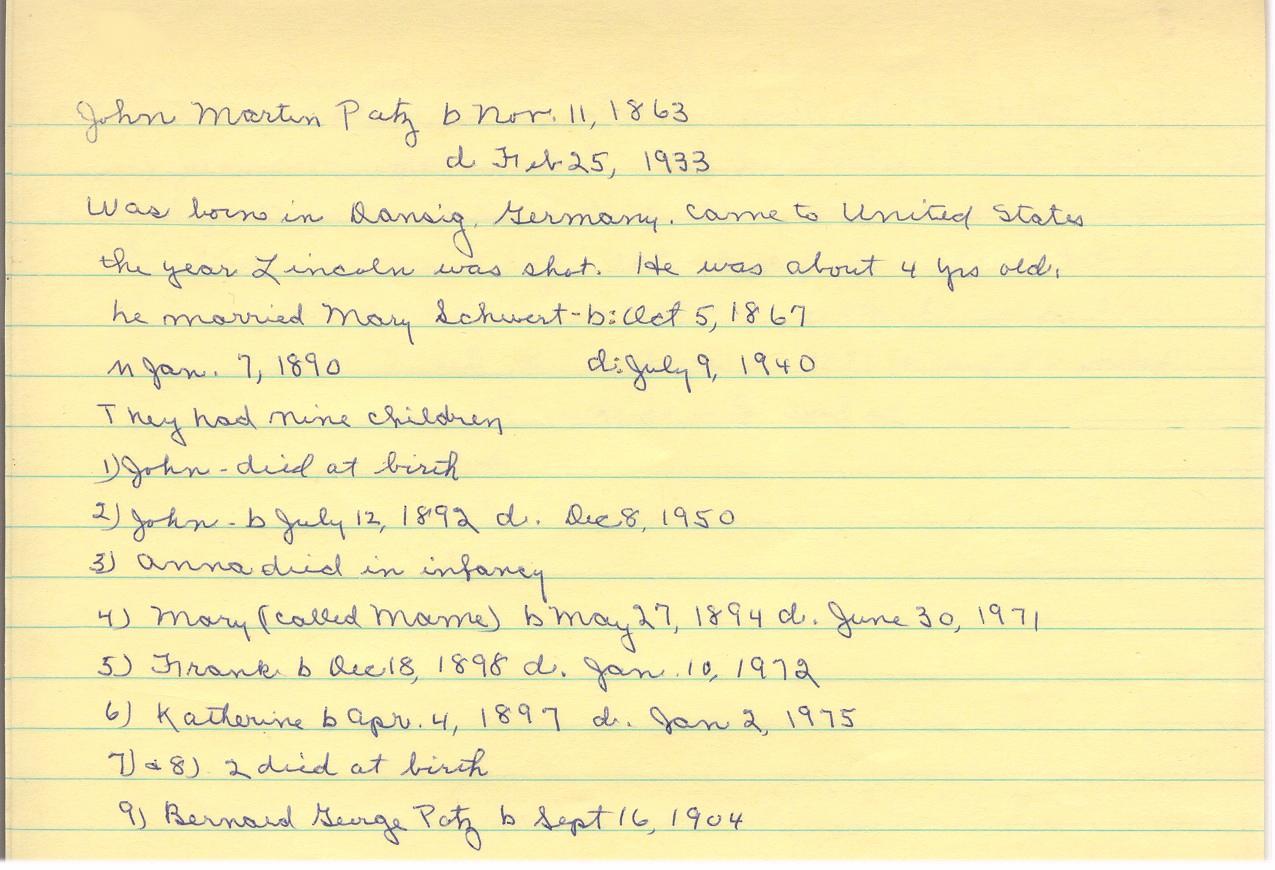 John Martin Patz b Nov. 11, 1863
d Feb 25, 1933
Was born in Dansig, Germany. Came to United States
the year Lincoln was shot. He was about 4 yrs old.
he married Mary Schwert - b: Oct 5, 1867
m Jan. 7, 1890 d: July 9, 1940
They had nine children
1) John - died at birth
2) John - b July 12, 1892 d. Dec 8, 1950
3) Anna died in infancy
4) Mary (called Mame) b May 27, 1894 d. June 30, 1971
5) Frank b Dec 18, 1898 d. Jan. 10, 1972
6) Katherine b Apr. 4, 1897 d. Jan 2, 1975
7) & 8) 2 died at birth
9) Bernard George Patz b Sept 16, 1904